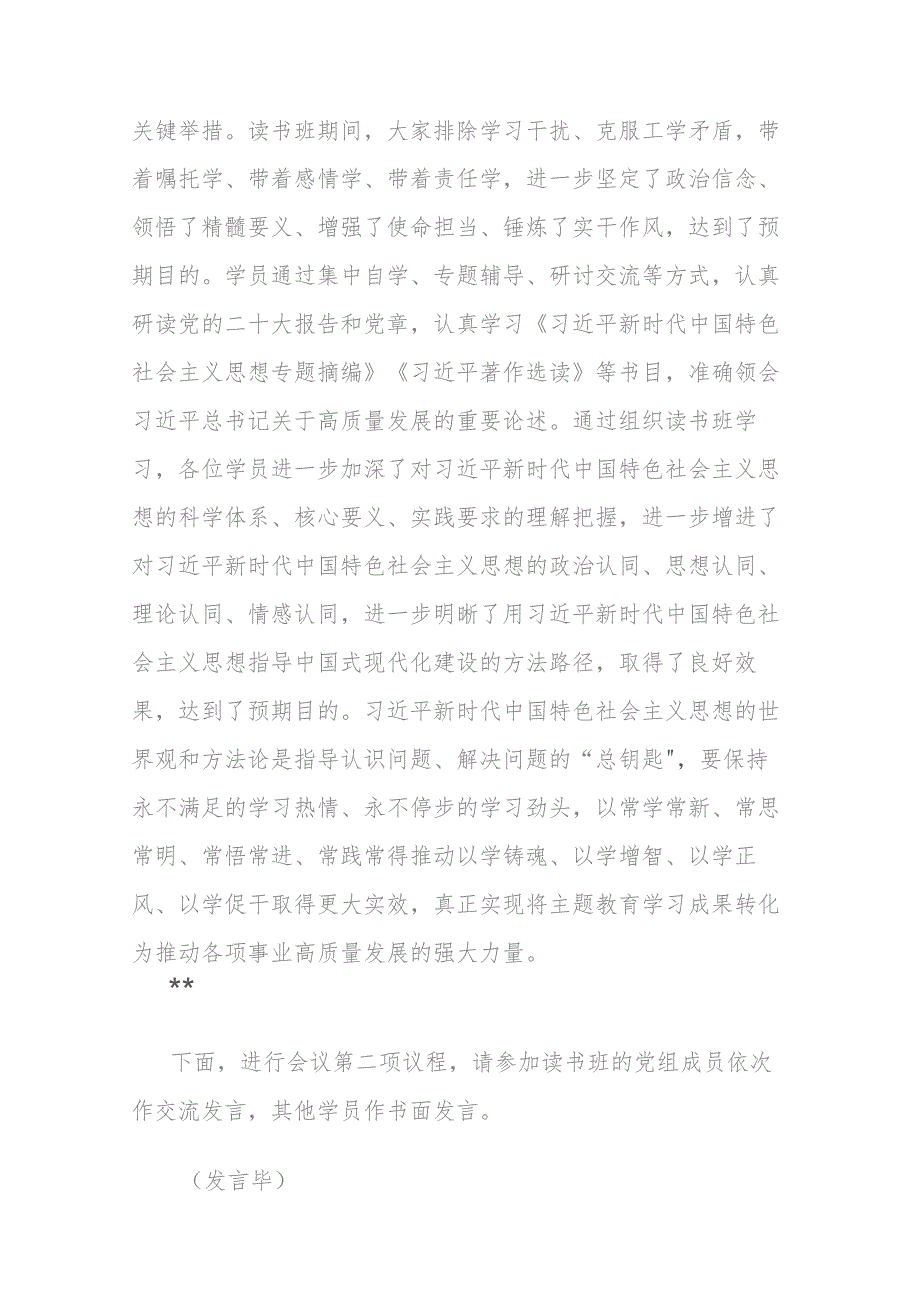 关键举措。读书班期间，大家排除学习干扰、克服工学矛盾，带
着嘱托学、带着感情学、带着责任学，进一步坚定了政治信念、
领悟了精髓要义、增强了使命担当、锤炼了实干作风，达到了预
期目的。学员通过集中自学、专题辅导、研讨交流等方式，认真
研读党的二十大报告和党章，认真学习《习近平新时代中国特色
社会主义思想专题摘编》《习近平著作选读》等书目，准确领会
习近平总书记关于高质量发展的重要论述。通过组织读书班学
习，各位学员进一步加深了对习近平新时代中国特色社会主义思
想的科学体系、核心要义、实践要求的理解把握，进一步增进了
对习近平新时代中国特色社会主义思想的政治认同、思想认同、
理论认同、情感认同，进一步明晰了用习近平新时代中国特色社
会主义思想指导中国式现代化建设的方法路径，取得了良好效
果，达到了预期目的。习近平新时代中国特色社会主义思想的世
界观和方法论是指导认识问题、解决问题的“总钥匙"，要保持
永不满足的学习热情、永不停步的学习劲头，以常学常新、常思
常明、常悟常进、常践常得推动以学铸魂、以学增智、以学正
风、以学促干取得更大实效，真正实现将主题教育学习成果转化
为推动各项事业高质量发展的强大力量。
**
下面，进行会议第二项议程，请参加读书班的党组成员依次
作交流发言，其他学员作书面发言。
（发言毕）